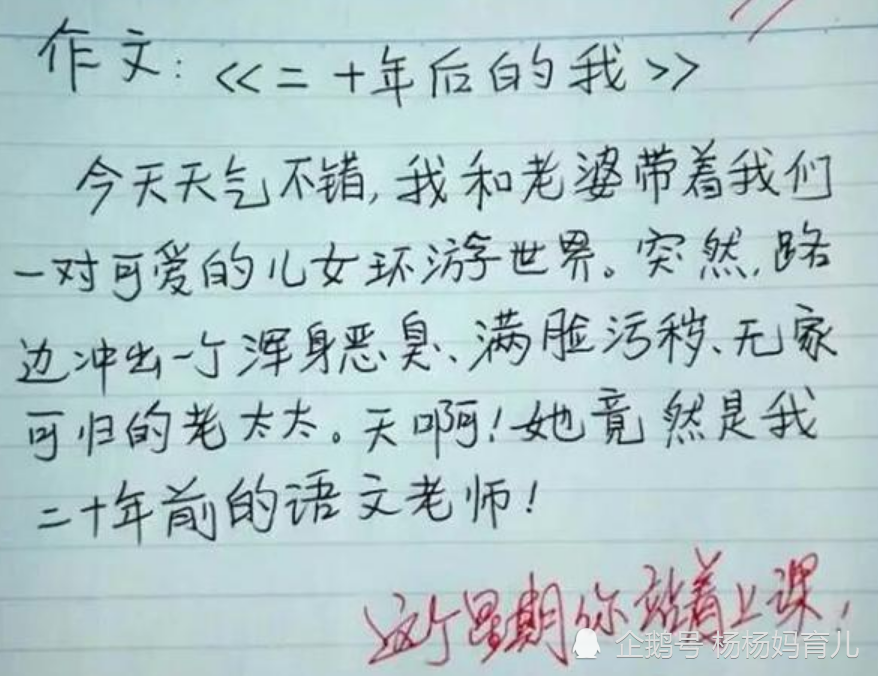 作文：<<二十年后的我>>
今天天气不错,我和老婆带着我们
一对可爱的儿女环游世界。突然,路
边冲出一个浑身恶臭、满脸污秽、无家
可归的老太太。天啊!她竟然是我
二十年前的语文老师!
这个星期你站着上课!
企鹅号 杨杨妈育儿